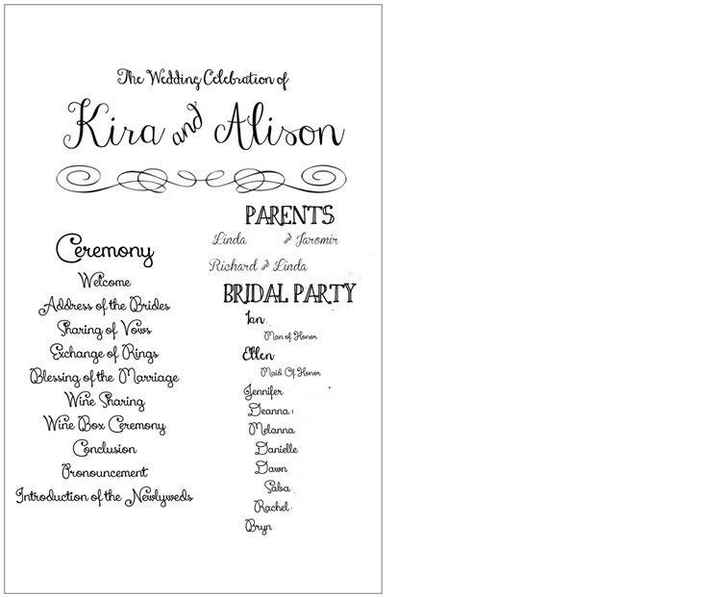 The Wedding Celebration of
Kira and Alison
Ceremony
Welcome
Address of the Brides
Sharing of Vows
Exchange of Rings
Blessing of the Marriage
Wine Sharing
Wine Box Ceremony
Conclusion
Pronouncement
Introduction of the Newlyweds
PARENTS
Linda & Jaromir
Richard & Linda
BRIDAL PARTY
Ian
Man of Honor
Ellen
Maid Of Honor
Jennifer
Deanna
Melanna
Danielle
Dawn
Salsa
Rachel
Bryn